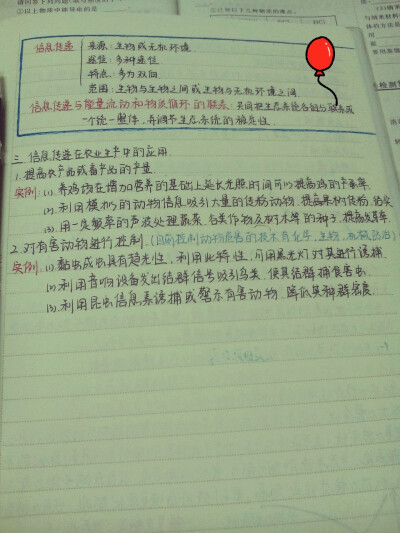 信息传递
来源：生物或无机环境
途径：多种途径
特点：多为双向
范围：生物与生物之间或生物与无机环境之间
信息传递与能量流动和物质循环的联系：共同把生态系统各组分联系成
一个统一整体，并调节生态系统的稳定性。
三、信息传递在农业生产中的应用
1.提高农产品或畜产品的产量
实例：(1).养鸡场在增加营养的基础上延长光照时间可以提高鸡的产蛋率
(2).利用模拟的动物信息吸引大量的传粉动物，提高果树传粉、结实
(3).用一定频率的声波处理蔬菜、谷类作物及树木等的种子，提高发芽率
2.对有害动物进行控制(目前控制动物危害的技术有化学、生物、机械防治)
实例：(1).黏虫成虫具有趋光性，利用此特性，可用黑光灯对其进行诱捕
(2).利用音响设备发出结群信号吸引鸟类，使其结群捕食害虫
(3).利用昆虫信息素诱捕或警示有害动物，降低其种群密度